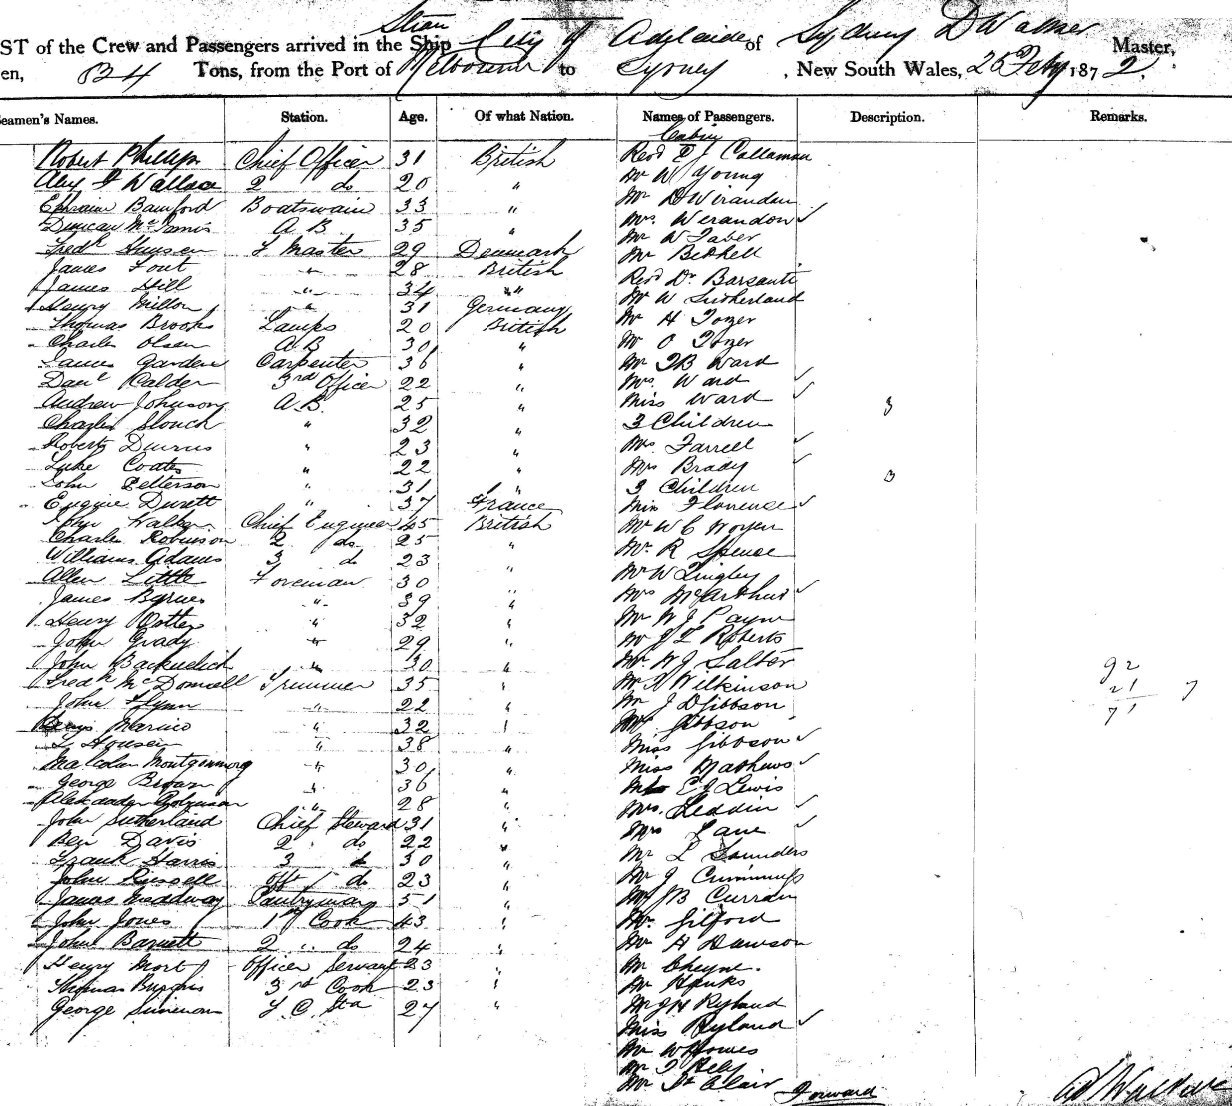 Steam
ST of the Crew and Passengers arrived in the Ship City of Adelaide of Sydney D Walker Master,
en, 84 Tons, from the Port of Melbourne to Sydney , New South Wales, 25 Feby 1872.
Seamen's Names. Station. Age. Of what Nation. Names of Passengers. Description. Remarks.
Cabin
Robert Phillips Chief Officer 31 British Revd E J Callaman
Alex Wallace 2 do 20 " Mr W Young
Ephraim Bamford Boatswain 33 " Mr D Wirandon
Duncan McInnis A B 35 " Mrs. Werandon ✓
Fredk Hansen L Master 29 Denmark Mr W Taber
James Font " 28 British Mr Bethell
James Hill " 34 " Revd Dr. Barsanti
Henry Millon " 31 Germany Mr W Sutherland
Thomas Brooks Lamps 20 British Mr H Tozer
Charles Olsen A B 30 " Mr O Tozer
James Gardene Carpenter 36 " Mr T B Ward
Danl Calder 3rd Officer 22 " Mrs. Ward ✓
Andrew Johnson A.B. 25 " Miss Ward ✓
Charles Slouch " 32 " 3 Children 3
Robert " 23 " Mrs Farrell ✓
Luke Coates " 22 " Mrs Brady ✓
John Petterson " 31 " 3 Children 3
Eugene Durett " 37 France Miss Florence ✓
John Walker Chief Engineer 45 British Mr W C
Charles Robinson 2 do 25 " Mr. R Spence
Williams Adams 3 do 23 " Mr W Lingley
Allen Little Foreman 30 " Mrs McArthur ✓
James Byrnes " 39 " Mr W J Payne
Henry Potter " 32 " Mr J L Roberts
John Grady " 29 " Mr W J Salter
John " 30 " Mr Wilkinson 92
Fredk McDonnell Trimmer 35 " Mr J D Gibbson 21 7
John Flynn " 22 " Gibbson 71
Denis Marino " 32 " Miss Gibbson ✓
Housen " 38 " Miss Mathews ✓
Malcolm Montgommory " 30 " E J Lewis
George Brown " 36 " Mrs. Leddin ✓
Alexander Robinson " 28 " Mrs Lane ✓
John Sutherland Chief Steward 31 " Mr L Saunders
Ben Davis 2 " do 22 " Mr J Cummings
Frank Harris 3 do 30 " Mr J B Curran
John Russell do 23 " Mr. Gilford
James Meadway Pantryman 51 " Mr H Dawson
John Jones 1st Cook 43 " Mr Cheyne.
John Barnett 2 " do 24 " Mr Hanks
Henry Mort Officer Servant 23 " Mr J H Ryland
Thomas 3rd Cook 23 " Miss Ryland ✓
George Simeon 27 " Mr W Homes
Mr T Kely
Mr St Clair
Forward